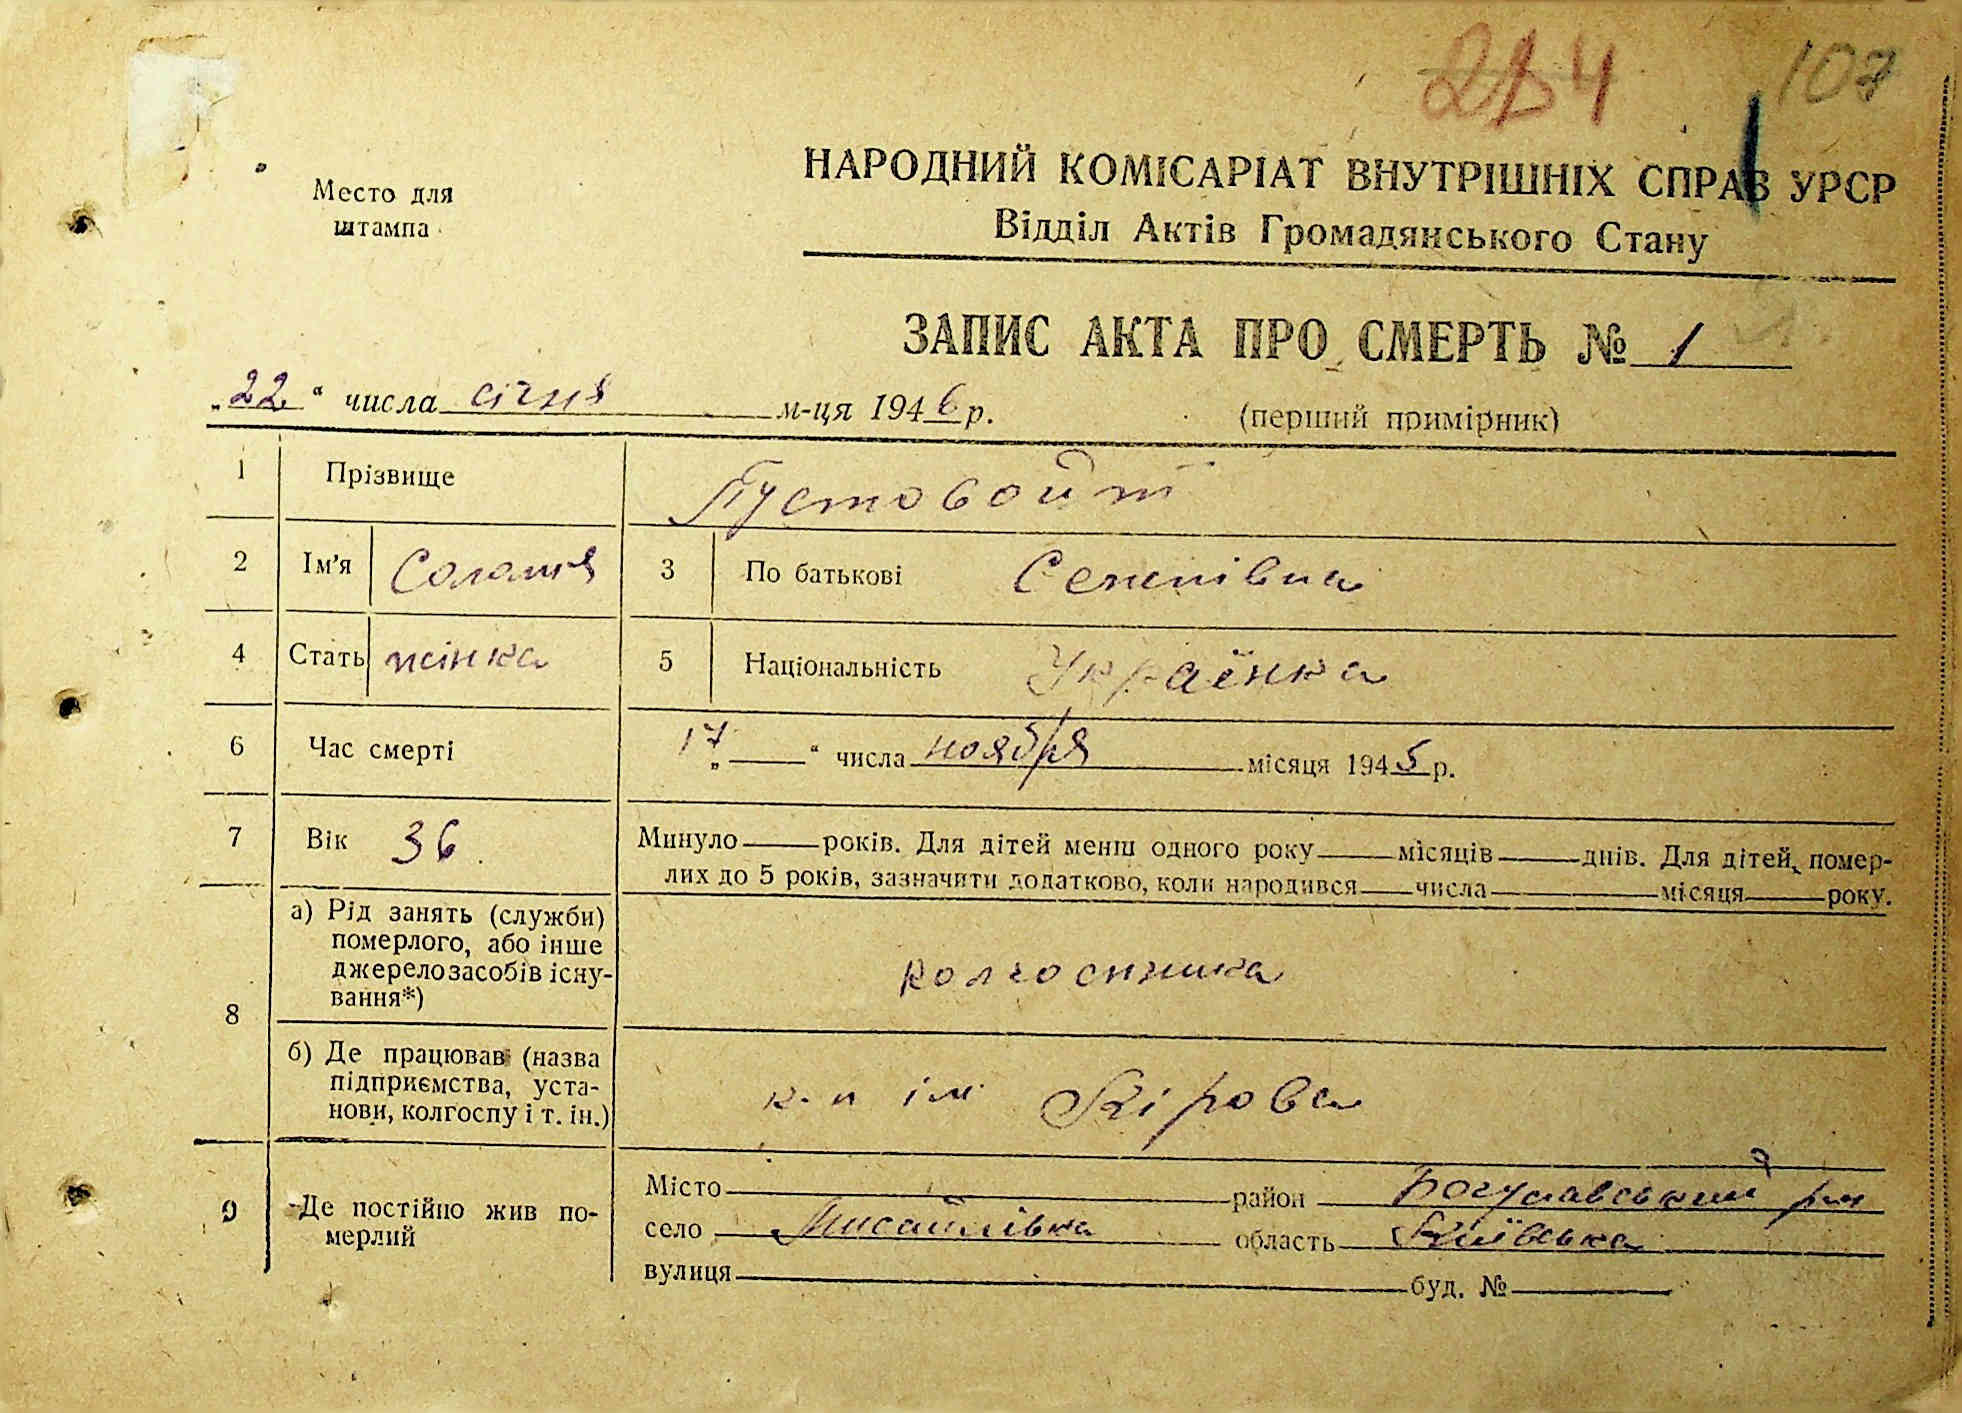 284 107
Место для
штампа
НАРОДНИЙ КОМІСАРІАТ ВНУТРІШНІХ СПРАВ УРСР
Відділ Актів Громадянського Стану
ЗАПИС АКТА ПРО СМЕРТЬ № 1
„22“ числа січня м-ця 1946 р.
(перший примірник)
1 Прізвище Пустовойт
2 Ім'я Соломія 3 По батькові Семенівна
4 Стать жінка 5 Національність Українка
6 Час смерті „17“ числа ноября місяця 1945 р.
7 Вік 36 Минуло____років. Для дітей менш одного року____місяців____днів. Для дітей, помер-
лих до 5 років, зазначити додатково, коли народився____числа____місяця____року.
8 а) Рід занять (служби)
померлого, або інше
джерело засобів існу-
вання*)
колгоспниця
б) Де працював (назва
підприємства, уста-
нови, колгоспу і т. ін.)
к-п ім Кірова
9 Де постійно жив по-
мерлий
Місто____район Богуславський р-н
село Мисайлівка область Київська
вулиця____буд. №____